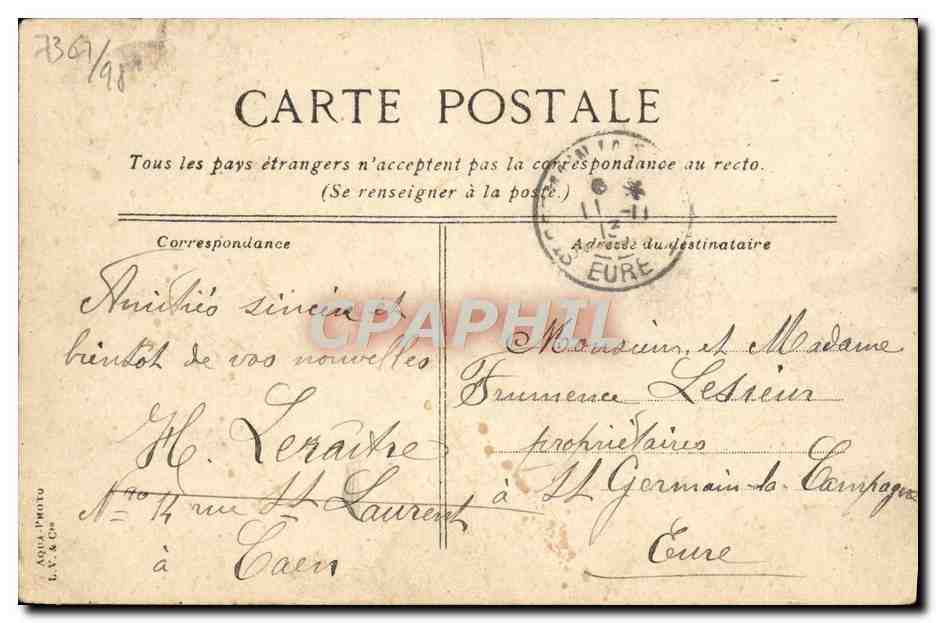 7367/98
CARTE POSTALE
Tous les pays étrangers n'acceptent pas la correspondance au recto.
(Se renseigner à la poste.)
Correspondance
Amitiés sincère et
bientot de vos nouvelles
H. Lezaitre
N° 14 rue St Laurent
à Caen
Adresse du destinataire
Monsieur et Madame
Frumence Lesieur
propriétaires
à St Germain-la-Campagne
Eure
EURE
CPAPHIL
AQUA-PHOTO
L. V. & Cie